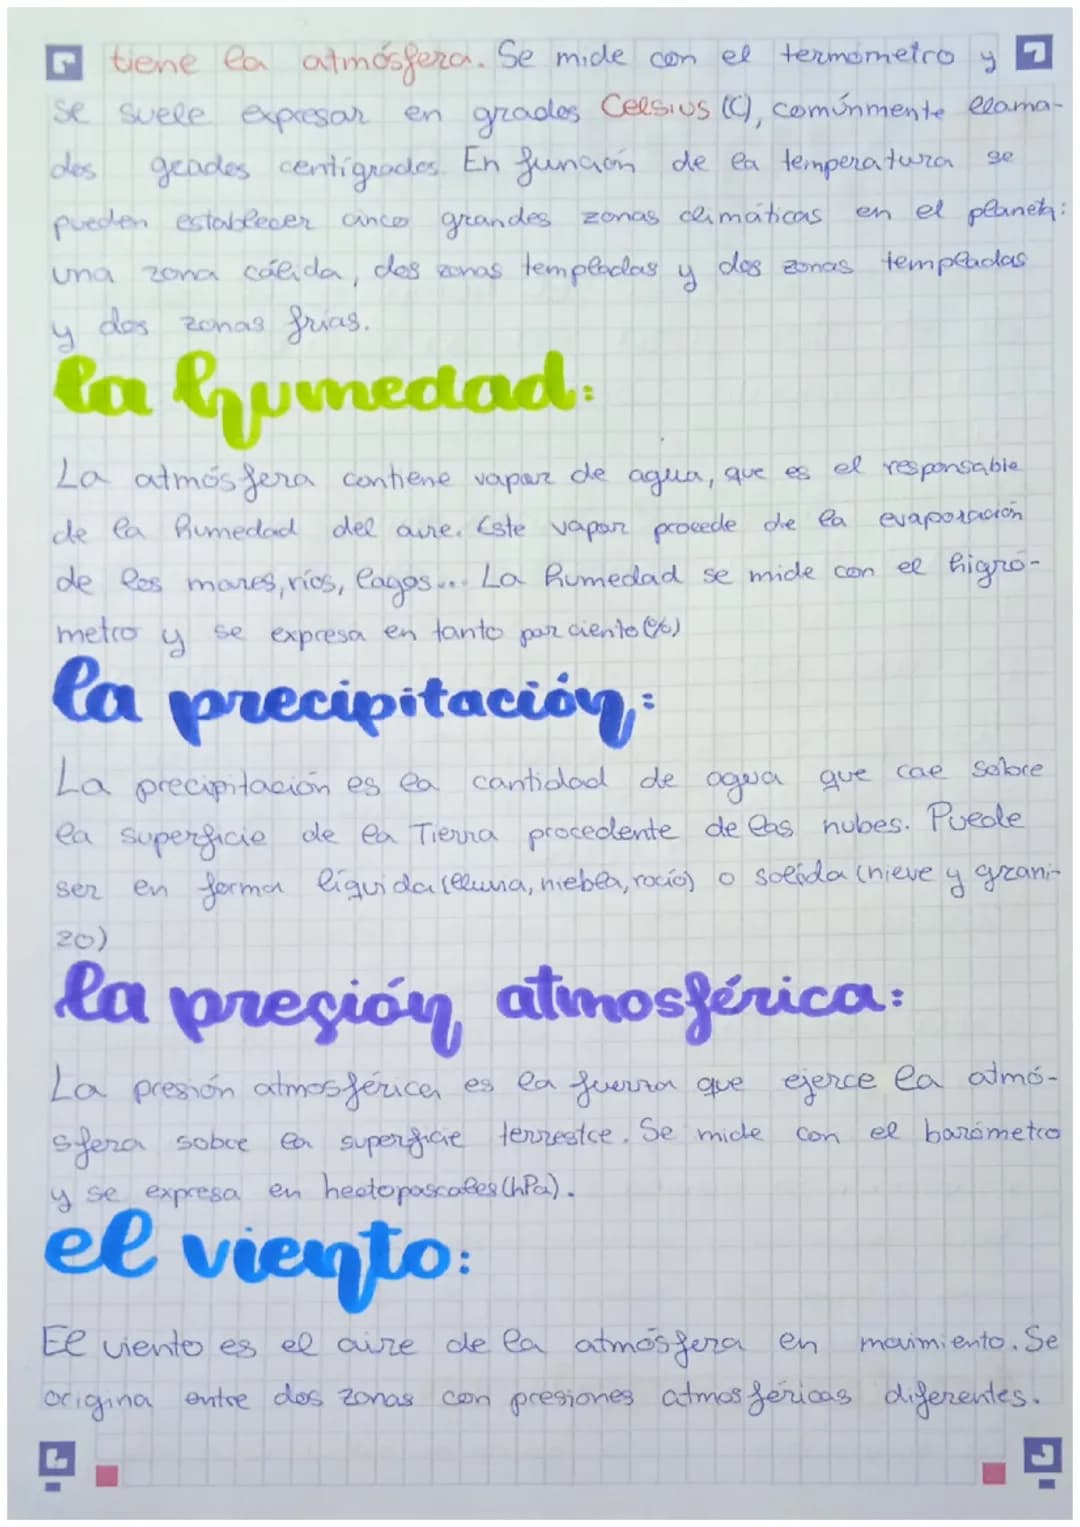 tiene la atmósfera. Se mide con el termómetro y
se suele expresar en grados Celsius (C), comúnmente llama-
dos grados centígrados. En función de la temperatura se
pueden establecer cinco grandes zonas climáticas en el planeta:
una zona cálida, dos zonas templadas y dos zonas templadas
y dos zonas frias.
la humedad:
La atmósfera contiene vapor de agua, que es el responsable
de la humedad del aire. Este vapor procede de la evaporación
de los mares, ríos, lagos... La humedad se mide con el higró-
metro y se expresa en tanto por ciento (%)
la precipitación:
La precipitación es la cantidad de agua que cae sobre
la superficie de la Tierra procedente de las nubes. Puede
ser en forma líquida (lluvia, niebla, rocío) o sólida (nieve y grani-
zo)
la presión atmosférica:
La presión atmosférica es la fuerza que ejerce la atmó-
sfera sobre la superficie terrestre. Se mide con el barómetro
y se expresa en hectopascales (hPa).
el viento:
El viento es el aire de la atmósfera en movimiento. Se
origina entre dos zonas con presiones atmosféricas diferentes.